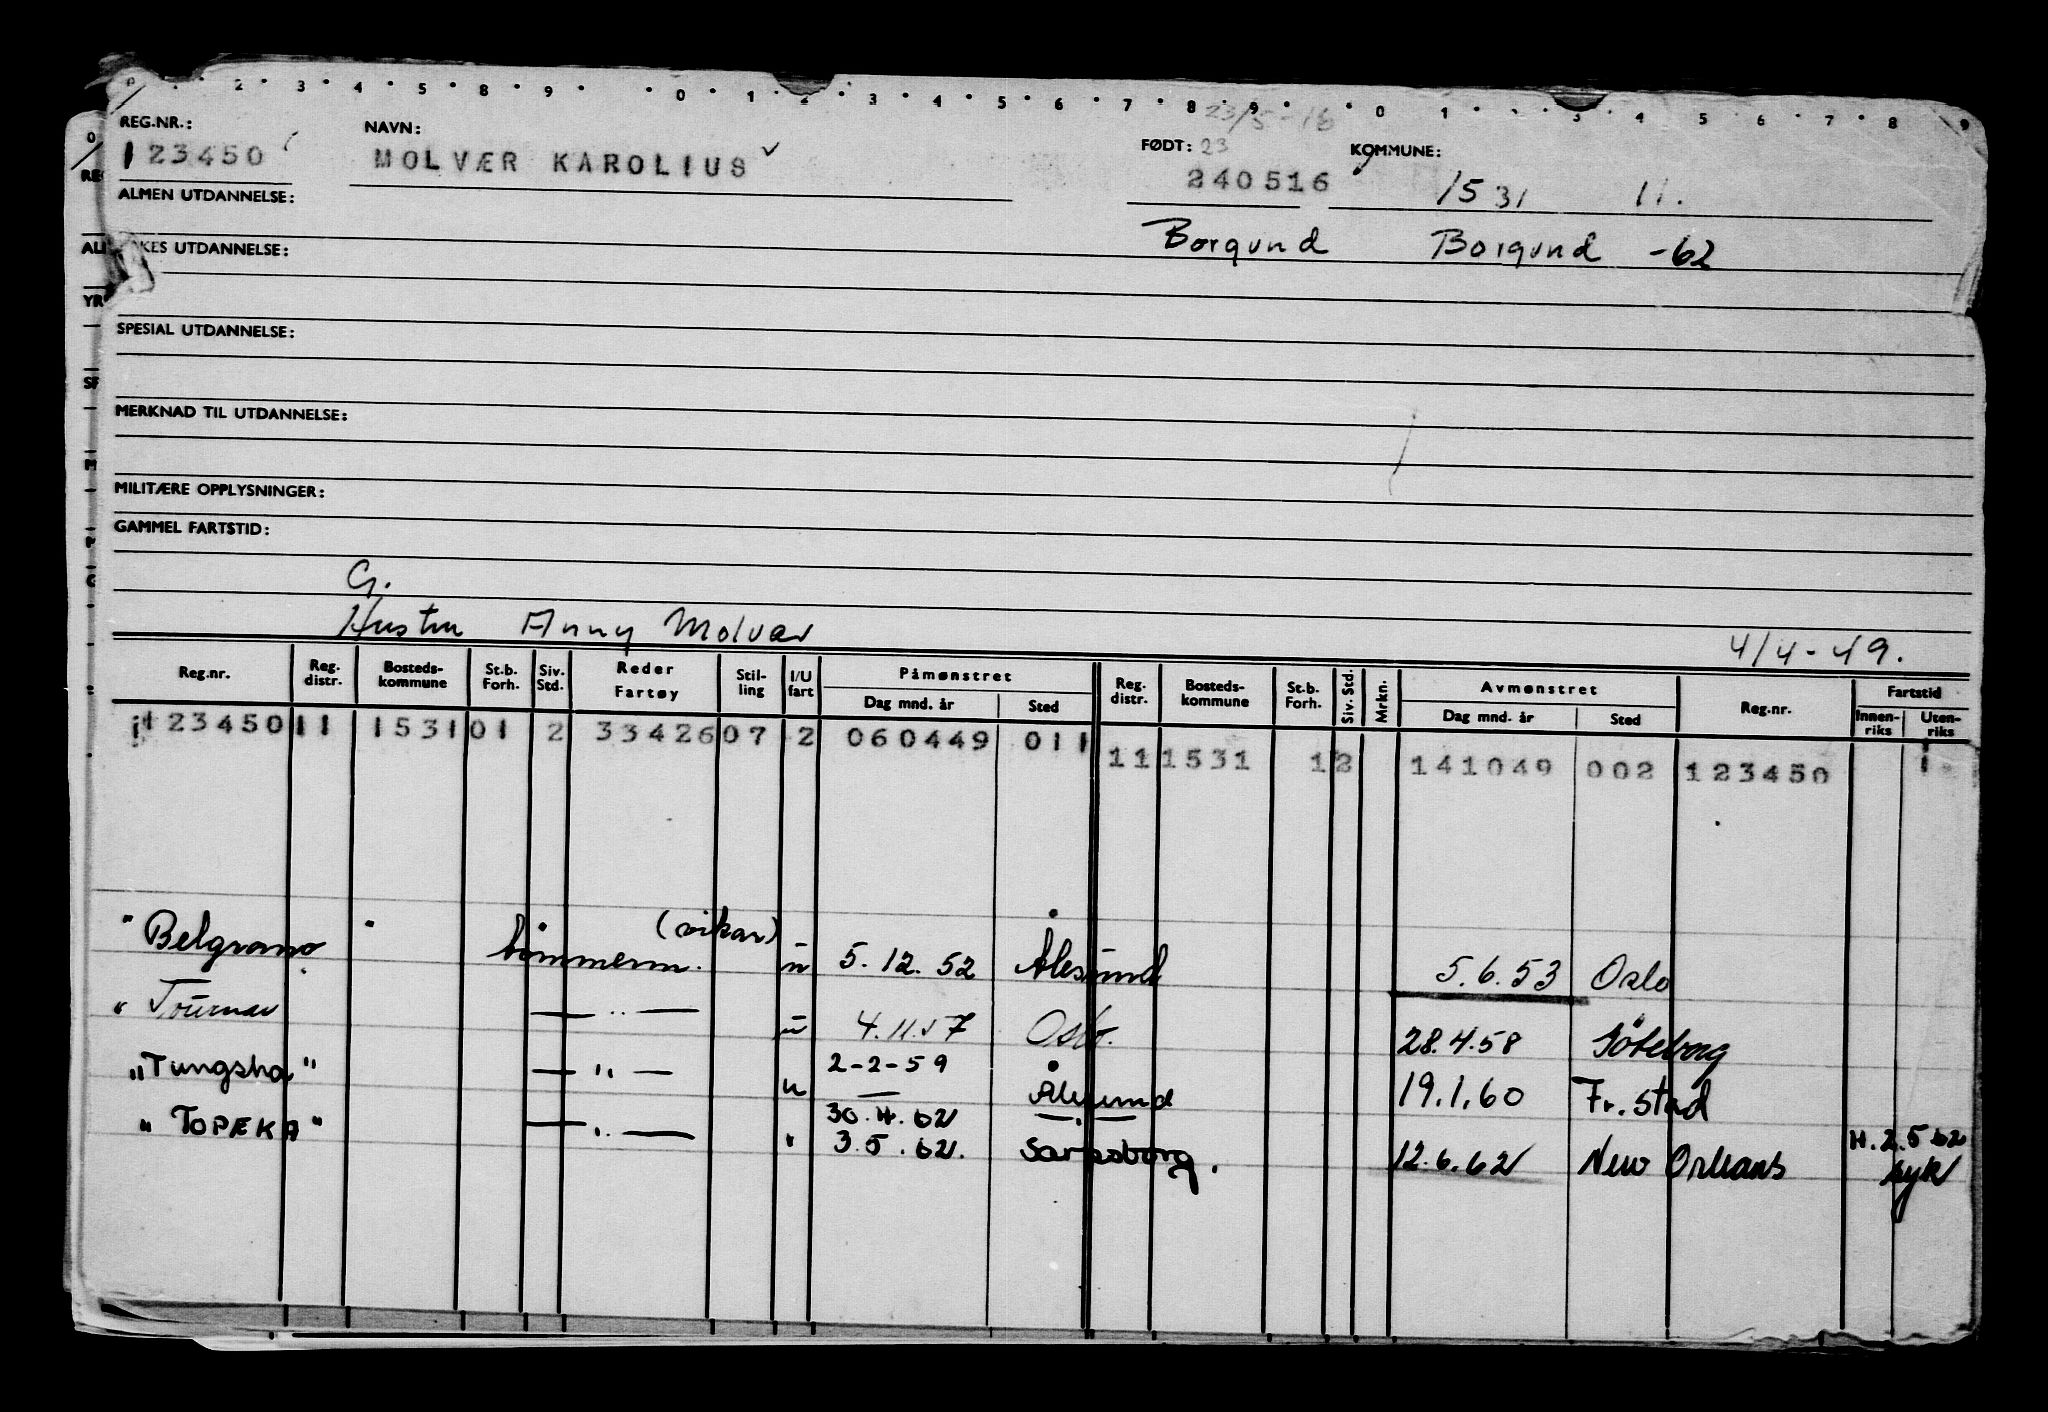 0 . . 2 . 3 . 4 . 5 . 8 . 9 . . 0 . 1 . 2 . 3 . 4 . 5 . 6 . 7 . 8 . 9 . . 0 . 1 . . 3 . 4 . 5 . 6 . 7 . 8 . 9
23/5-16
REG.NR.: NAVN: FØDT: 23 KOMMUNE:
123450 MOLVÆR KAROLIUS 240516 1531 11.
ALMEN UTDANNELSE:
Borgund Borgund -62
KES UTDANNELSE:
SPESIAL UTDANNELSE:
MERKNAD TIL UTDANNELSE:
MILITÆRE OPPLYSNINGER:
GAMMEL FARTSTID:
G.
Hustru Anny Molvær 4/4-49.
Reg.nr. Reg. distr. Bosteds- kommune St.b. Forh. Siv. Std. Reder Fartøy Stil- ling I/U fart Påmønstret Dag mnd. år Sted Reg. distr. Bosteds- kommune St.b. Forh. Siv. Std. Mrkn. Avmønstret Dag mnd. år Sted Reg.nr. Fartstid Innen- riks Uten- riks
123450 11 1531 01 2 33426 07 2 060449 011 11 1531 1 2 141049 002 123450 1
"Belgrano" tømmerm. (vikar) u 5.12.52 Ålesund 5.6.53 Oslo
" — " — u 4.11.57 Oslo. 28.4.58 Göteborg
"Tungsha" — " — u 2-2-59 Ålesund 19.1.60 Fr.stad
— 30.4.62 — " —
"TOPEKA" — " — " 3.5.62. Sarpsborg. 12.6.62 New Orleans H. 2.5 62 syk